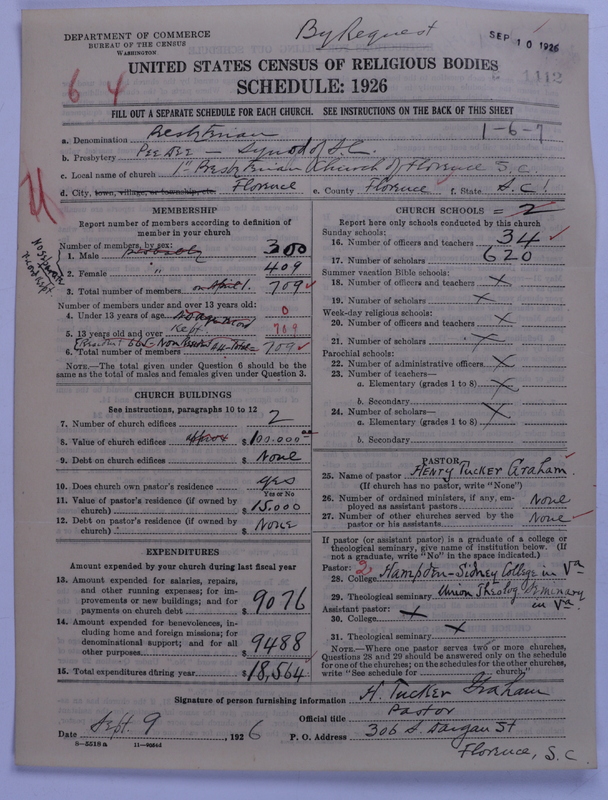 DEPARTMENT OF COMMERCE
BUREAU OF THE CENSUS
WASHINGTON
By Request
SEP 10 1926
UNITED STATES CENSUS OF RELIGIOUS BODIES
1112
6 4
SCHEDULE: 1926
FILL OUT A SEPARATE SCHEDULE FOR EACH CHURCH. SEE INSTRUCTIONS ON THE BACK OF THIS SHEET
a. Denomination Presbyterian 1-6-7
b. Presbytery PEE DEE — Synod of S.C.
c. Local name of church 1st Presbyterian Church of Florence S.C.
d. City, town, village, or township, etc. Florence e. County Florence f. State S.C.
MEMBERSHIP
Report number of members according to definition of member in your church
Number of members, by sex:
1. Male Probably 300
2. Female " 409
3. Total number of members on April 1. 709
Number of members under and over 13 years old:
4. Under 13 years of age No age record 0
5. 13 years old and over Kept 709
6. Total number of members 709
NOTE.—The total given under Question 6 should be the
same as the total of males and females given under Question 3.
CHURCH BUILDINGS
See instructions, paragraphs 10 to 12
7. Number of church edifices 2
8. Value of church edifices approx $100.000.00
9. Debt on church edifices $ None
10. Does church own pastor's residence? yes
Yes or No
11. Value of pastor's residence (if owned by
church) $15.000
12. Debt on pastor's residence (if owned by
church) $ None
EXPENDITURES
Amount expended by your church during last fiscal year
13. Amount expended for salaries, repairs,
and other running expenses; for im-
provements or new buildings; and for
payments on church debt $9076
14. Amount expended for benevolences, in-
cluding home and foreign missions; for
denominational support; and for all
other purposes $9488
15. Total expenditures during year $18,564
CHURCH SCHOOLS = 2
Report here only schools conducted by this church
Sunday schools:
16. Number of officers and teachers 34
17. Number of scholars 620
Summer vacation Bible schools:
18. Number of officers and teachers X
19. Number of scholars X
Week-day religious schools:
20. Number of officers and teachers X
21. Number of scholars X
Parochial schools:
22. Number of administrative officers X
23. Number of teachers—
a. Elementary (grades 1 to 8) X
b. Secondary
24. Number of scholars— X
a. Elementary (grades 1 to 8)
b. Secondary
PASTOR
25. Name of pastor Henry Tucker Graham
(If church has no pastor, write "None")
26. Number of ordained ministers, if any, em-
ployed as assistant pastors None
27. Number of other churches served by the
pastor or his assistants None
If pastor (or assistant pastor) is a graduate of a college or
theological seminary, give name of institution below. (If
not a graduate, write "No" in the space indicated.)
Pastor: 2
28. College Hampden-Sidney College in Va
29. Theological seminary Union Theolog Seminary in Va
Assistant pastor:
30. College X
31. Theological seminary X
NOTE.—Where one pastor serves two or more churches,
Questions 28 and 29 should be answered only on the schedule
for one of the churches; on the schedules for the other churches,
write "See schedule for church."
Signature of person furnishing information H. Tucker Graham
Official title Pastor
Date Sept. 9, 1926 P. O. Address 306 S. Dargan St
Florence, S.C.
8-5518a 11-90864